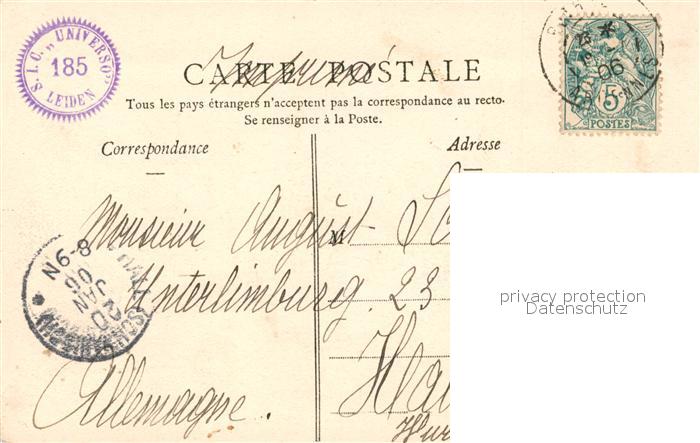 S.I.C. „UNIVERSO"
185
LEIDEN
Imprimé
CARTE POSTALE
Tous les pays étrangers n'acceptent pas la correspondance au recto.
Se renseigner à la Poste.
Correspondance
Adresse
06
5
POSTES
Monsieur August Sc
M
Unterlimburg. 23
Ha
Allemagne.
8-9N
20
JAN
06
privacy protection
Datenschutz